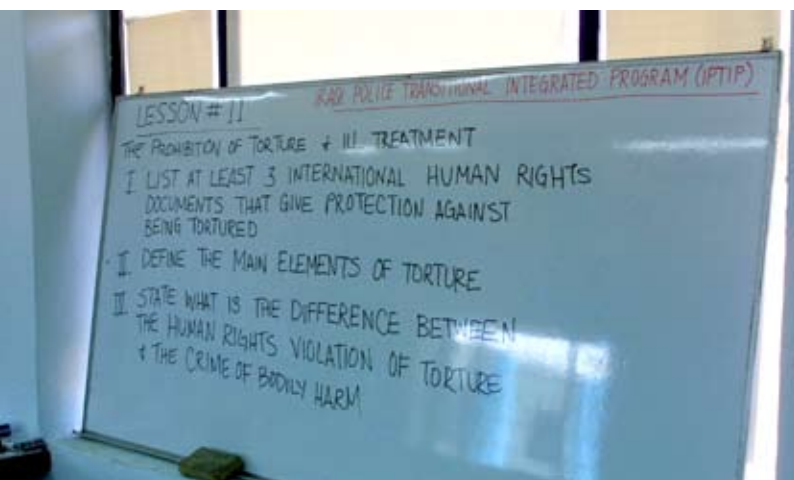 IRAQI POLICE TRANSITIONAL INTEGRATED PROGRAM (IPTIP)
LESSON # 11
THE PROHIBITION OF TORTURE & ILL TREATMENT
I LIST AT LEAST 3 INTERNATIONAL HUMAN RIGHTS
DOCUMENTS THAT GIVE PROTECTION AGAINST
BEING TORTURED
II DEFINE THE MAIN ELEMENTS OF TORTURE
III STATE WHAT IS THE DIFFERENCE BETWEEN
THE HUMAN RIGHTS VIOLATION OF TORTURE
& THE CRIME OF BODILY HARM